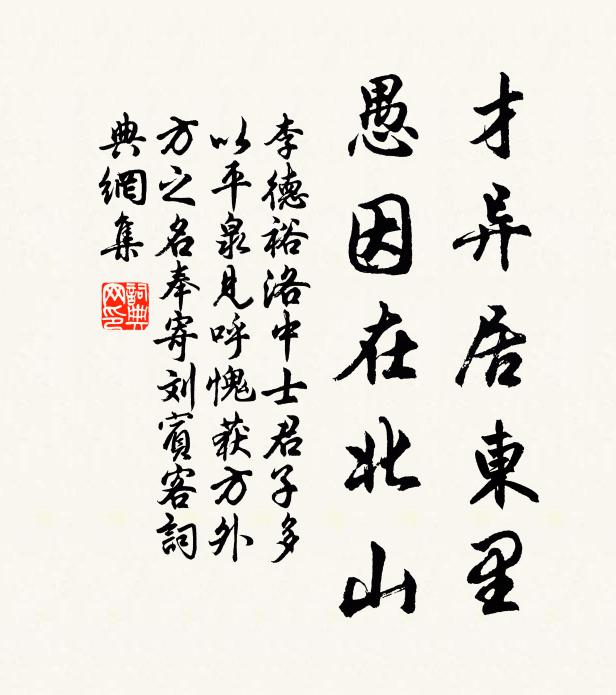 才异居東里
愚因在北山
李德裕洛中士君子多
以平泉見呼愧获方外
方之名奉寄刘賓客詞
典網集
詞典
网印